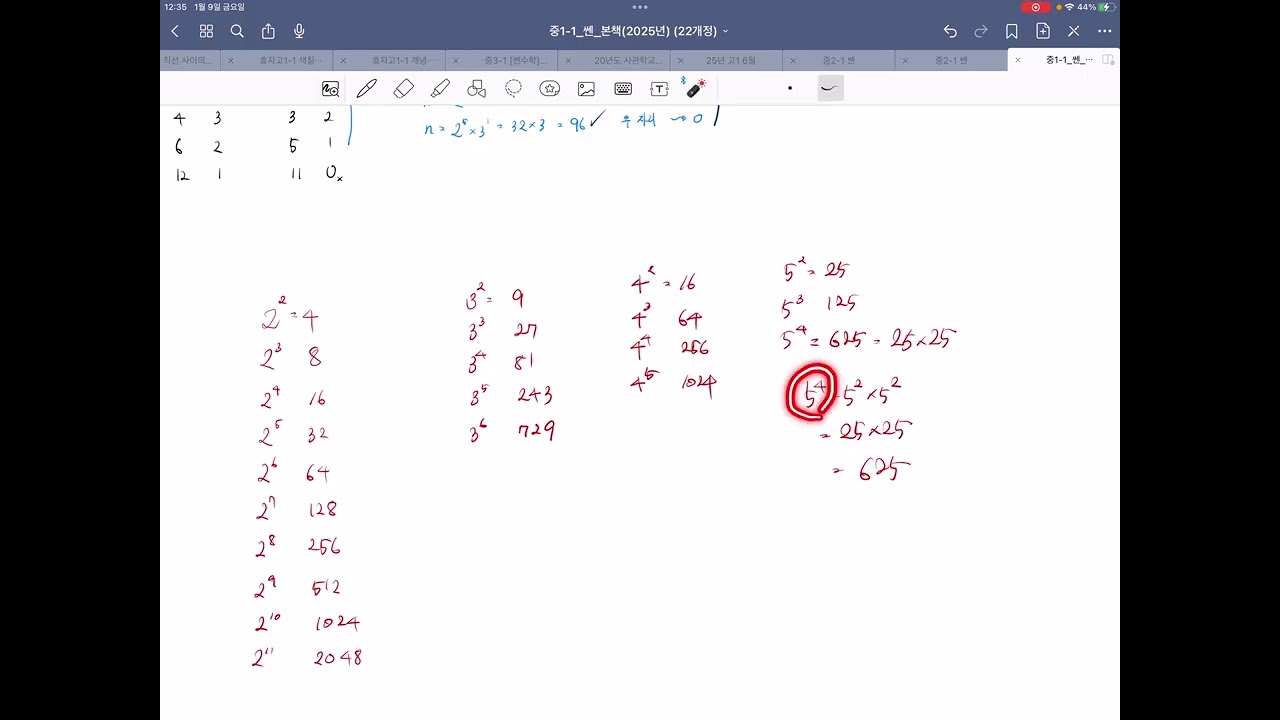 12:35 1월 9일 금요일
44%
중1-1_쎈_본책(2025년) (22개정)
직선 사이의...
효자고1-1 색칠...
효자고1-1 개념...
중3-1 [변수학]...
20년도 사관학교...
25년 고1 6월
중2-1 쎈
중2-1 쎈
중1-1_쎈_...
4 3 3 2
6 2 5 1
12 1 11 0ₓ
n = 2⁵ × 3¹ = 32 × 3 = 96 ✓ → 0
2² = 4
2³ 8
2⁴ 16
2⁵ 32
2⁶ 64
2⁷ 128
2⁸ 256
2⁹ 512
2¹⁰ 1024
2¹¹ 2048
3² = 9
3³ 27
3⁴ 81
3⁵ 243
3⁶ 729
4² = 16
4³ 64
4⁴ 256
4⁵ 1024
5² = 25
5³ 125
5⁴ = 625 = 25 × 25
5⁴ = 5² × 5²
= 25 × 25
= 625